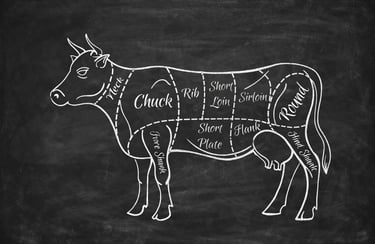 Neck
Chuck
Rib
Short
Loin
Sirloin
Round
Fore Shank
Short
Plate
Flank
Hind Shank